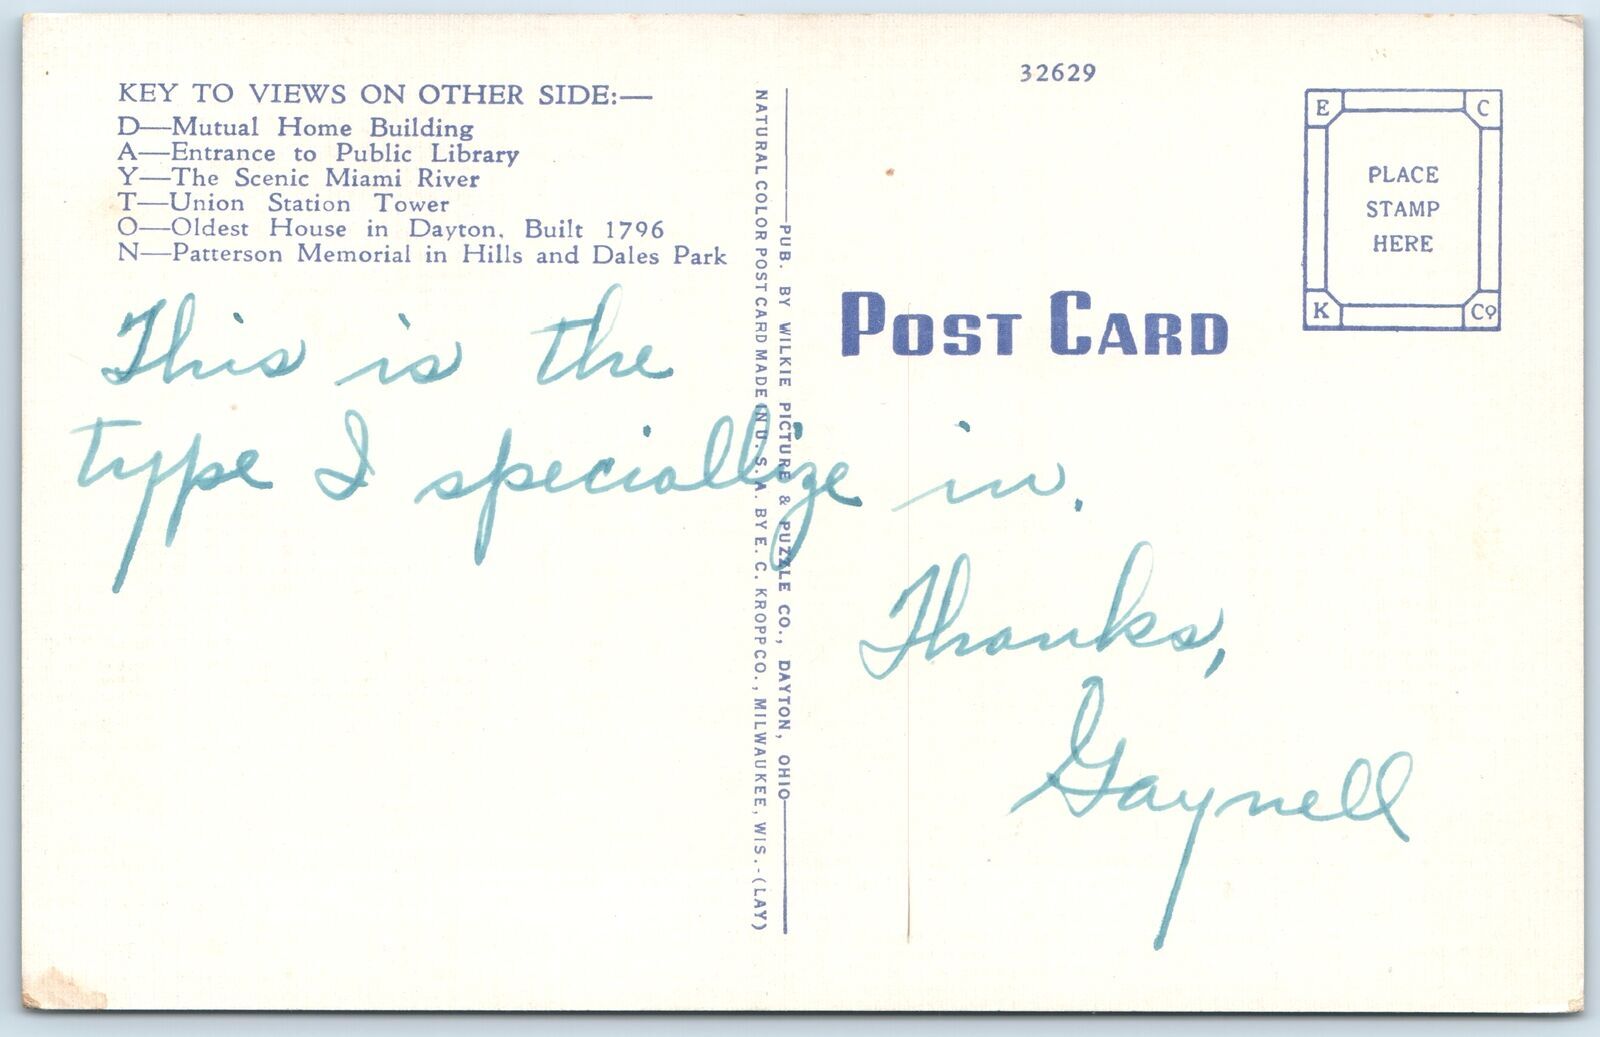 32629
KEY TO VIEWS ON OTHER SIDE:—
D—Mutual Home Building
A—Entrance to Public Library
Y—The Scenic Miami River
T—Union Station Tower
O—Oldest House in Dayton, Built 1796
N—Patterson Memorial in Hills and Dales Park
This is the
type I speciallize in.
Thanks,
Gaynell
PUB. BY WILKIE PICTURE & PUZZLE CO., DAYTON, OHIO
NATURAL COLOR POST CARD MADE IN U. S. A. BY E. C. KROPP CO., MILWAUKEE, WIS.-(LAY)
POST CARD
E C
PLACE
STAMP
HERE
K Co